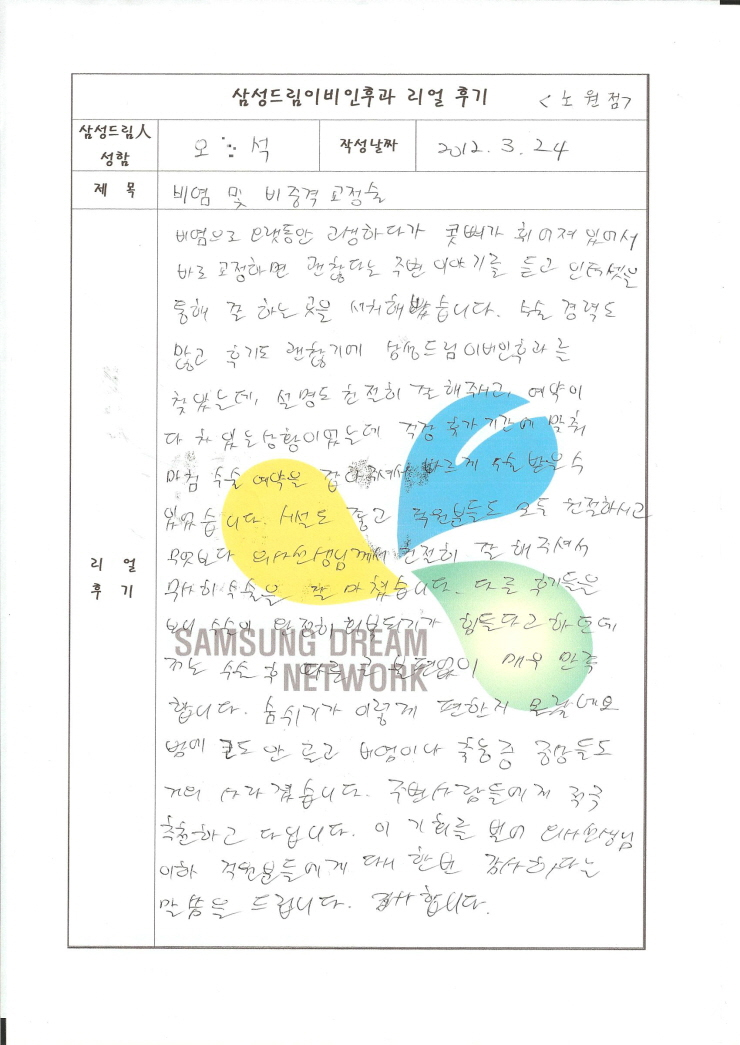 삼성드림이비인후과 리얼 후기 <노원점>
삼성드림人 성함 오 석 작성날짜 2012. 3. 24
제 목 비염 및 비중격교정술
리 얼 후 기
비염으로 오랫동안 고생하다가 콧뼈가 휘어져 있어서
바로 교정하면 괜찮다는 주변 이야기를 듣고 인터넷을
통해 잘 하는 곳을 서치해봤습니다. 수술 경력도
많고 후기도 괜찮기에 삼성드림이비인후과를
찾았는데, 설명도 친절히 잘 해주시고, 예약이
다 차 있는상황이었는데 직장 휴가기간에 맞춰
마침 수술 예약을 잡아주셔서 빠르게 수술 받을수
있었습니다. 시설도 좋고 직원분들도 모두 친절하시고
무엇보다 의사선생님께서 친절히 잘 해주셔서
무사히 수술을 잘 마쳤습니다. 다른 후기들을
보니 수술이 완전히 회복되기가 힘들다고 하던데
저는 수술 후 다른 큰 불편없이 매우 만족
합니다. 숨쉬기가 이렇게 편한지 몰랐네요
밤에 코도 안 골고 비염이나 축농증 증상들도
거의 사라졌습니다. 주변사람들에게 적극
추천하고 다닙니다. 이 기회를 빌어 의사선생님
이하 직원분들에게 다시 한번 감사하다는
말씀을 드립니다. 감사합니다.
SAMSUNG DREAM
NETWORK